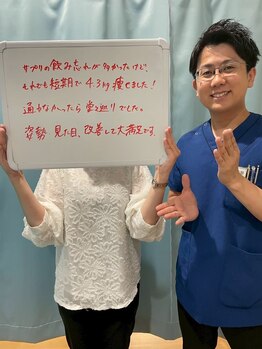 サプリの飲み忘れが多かったけど、
それでも短期で4.3kg痩せました!
通わなかったら愛巡りでした。
姿勢 見た目、改善して大満足です。